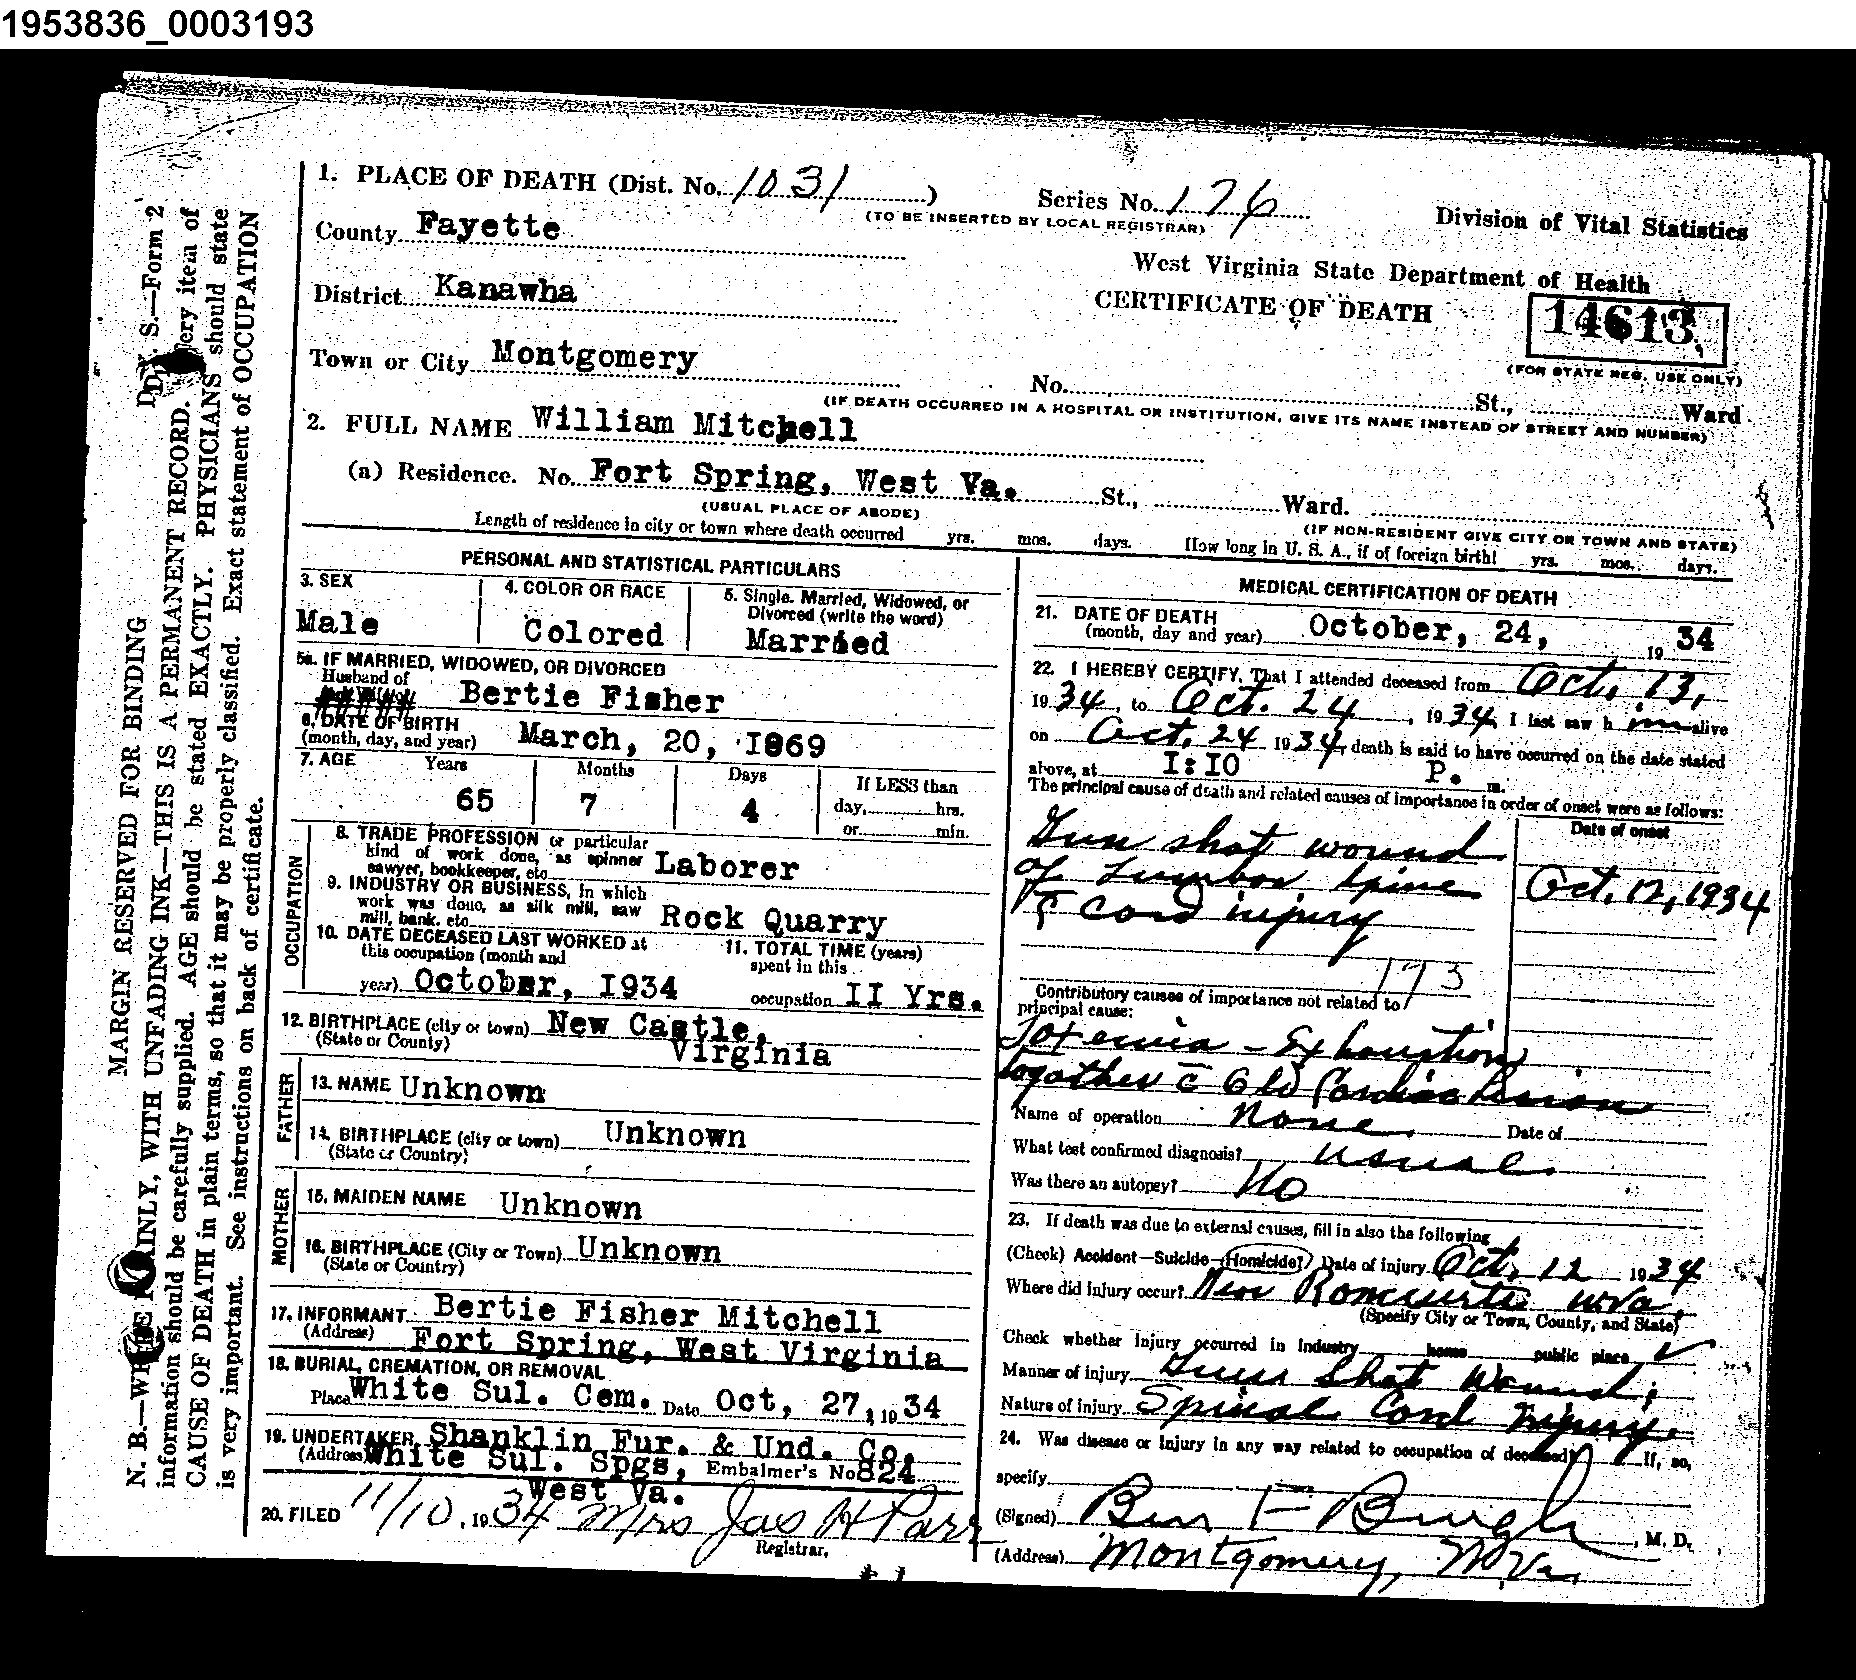 1953836_0003193
1. PLACE OF DEATH (Dist. No. 1031)
Series No. 176
(TO BE INSERTED BY LOCAL REGISTRAR)
Division of Vital Statistics
County Fayette
West Virginia State Department of Health
District Kanawha
CERTIFICATE OF DEATH
14613
(FOR STATE REG. USE ONLY)
Town or City Montgomery
No. St., Ward
(IF DEATH OCCURRED IN A HOSPITAL OR INSTITUTION, GIVE ITS NAME INSTEAD OF STREET AND NUMBER)
2. FULL NAME William Mitchell
(a) Residence. No. Fort Spring, West Va. St., Ward.
(USUAL PLACE OF ABODE)
(IF NON-RESIDENT GIVE CITY OR TOWN AND STATE)
Length of residence in city or town where death occurred yrs. mos. days. How long in U. S. A., if of foreign birth? yrs. mos. days.
PERSONAL AND STATISTICAL PARTICULARS
3. SEX
Male
4. COLOR OR RACE
Colored
5. Single. Married, Widowed, or
Divorced (write the word)
Married
5a. IF MARRIED, WIDOWED, OR DIVORCED
Husband of
Bertie Fisher
6. DATE OF BIRTH
(month, day, and year) March, 20, I869
7. AGE Years Months Days If LESS than
65 7 4 day, hrs.
or min.
OCCUPATION
8. TRADE PROFESSION or particular
kind of work done, as spinner
sawyer, bookkeeper, etc. Laborer
9. INDUSTRY OR BUSINESS, in which
work was done, as silk mill, saw
mill, bank, etc. Rock Quarry
10. DATE DECEASED LAST WORKED at
this occupation (month and
year) October, I934
11. TOTAL TIME (years)
spent in this
occupation II Yrs.
12. BIRTHPLACE (city or town) New Castle,
(State or County) Virginia
FATHER
13. NAME Unknown
14. BIRTHPLACE (city or town) Unknown
(State or Country)
MOTHER
15. MAIDEN NAME Unknown
16. BIRTHPLACE (City or Town) Unknown
(State or Country)
17. INFORMANT Bertie Fisher Mitchell
(Address) Fort Spring, West Virginia
18. BURIAL, CREMATION, OR REMOVAL
Place White Sul. Cem. Date Oct, 27, 1934
19. UNDERTAKER Shanklin Fur. & Und. Co.
(Address White Sul. Spgs, Embalmer's No 824
West Va.
20. FILED 11/10, 1934 Mrs Jas H Parr
Registrar.
MEDICAL CERTIFICATION OF DEATH
21. DATE OF DEATH
(month, day and year) October, 24, 1934
22. I HEREBY CERTIFY, That I attended deceased from Oct. 13,
1934, to Oct. 24, 1934, I last saw him alive
on Oct. 24 1934, death is said to have occurred on the date stated
above, at I:IO P. m.
The principal cause of death and related causes of importance in order of onset were as follows:
Date of onset
Gun shot wound
of Lumbar Spine
& Cord injury
Oct. 12, 1934
173
Contributory causes of importance not related to
principal cause:
Toxemia - Exhaustion
together c̄ Old Cardiac Lesion
Name of operation None. Date of
What test confirmed diagnosis? usual.
Was there an autopsy? No
23. If death was due to external causes, fill in also the following
(Check) Accident—Suicide—Homicide? Date of injury Oct. 12 1934
Where did injury occur? Near Ronceverte WVa.
(Specify City or Town, County, and State)
Check whether injury occurred in Industry home public place ✓
Manner of injury Gun Shot Wound;
Nature of injury Spinal Cord Injury.
24. Was disease or injury in any way related to occupation of deceased? If, so,
specify
(Signed) Ben F Brugh, M. D.
(Address) Montgomery, W.Va.
MARGIN RESERVED FOR BINDING
S.—Form 2
N. B.—WRITE PLAINLY, WITH UNFADING INK—THIS IS A PERMANENT RECORD. Every item of
information should be carefully supplied. AGE should be stated EXACTLY. PHYSICIANS should state
CAUSE OF DEATH in plain terms, so that it may be properly classified. Exact statement of OCCUPATION
is very important. See instructions on back of certificate.